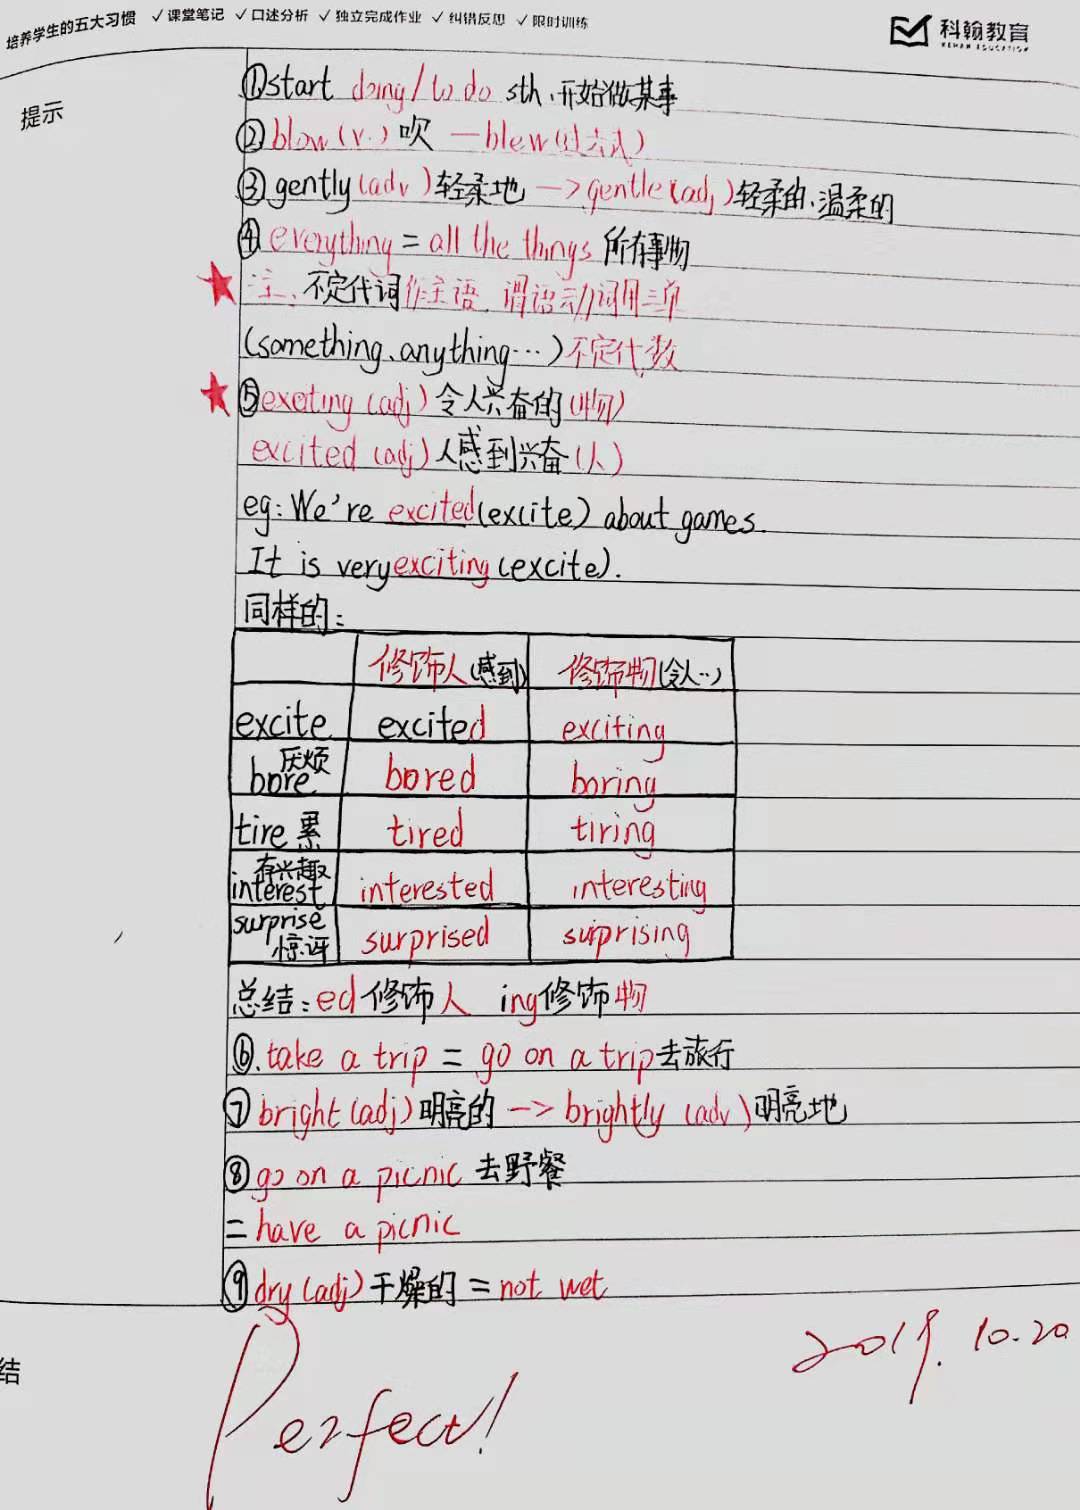 培养学生的五大习惯 ✓课堂笔记 ✓口述分析 ✓独立完成作业 ✓纠错反思 ✓限时训练
科翰教育
KEHAN EDUCATION
提示
①start doing/to do sth.开始做某事
②blow(v.)吹 —blew(过去式)
③gently(adv)轻柔地 —>gentle(adj)轻柔的、温柔的
④everything = all the things 所有事物
★注、不定代词作主语,谓语动词用三单
(something、anything…)不定代数
★⑤exciting (adj) 令人兴奋的(物)
excited (adj) 人感到兴奋(人)
eg: We're excited(excite) about games.
It is very exciting (excite).
同样的:
修饰人(感到) 修饰物(令人..)
excite excited exciting
bore厌烦 bored boring
tire 累 tired tiring
interest有兴趣 interested interesting
surprise惊讶 surprised surprising
总结:ed修饰人 ing修饰物
⑥.take a trip = go on a trip去旅行
⑦bright(adj)明亮的 --> brightly (adv)明亮地
⑧go on a picnic 去野餐
= have a picnic
⑨dry(adj)干燥的 = not wet
2019.10.20
结
Perfect!